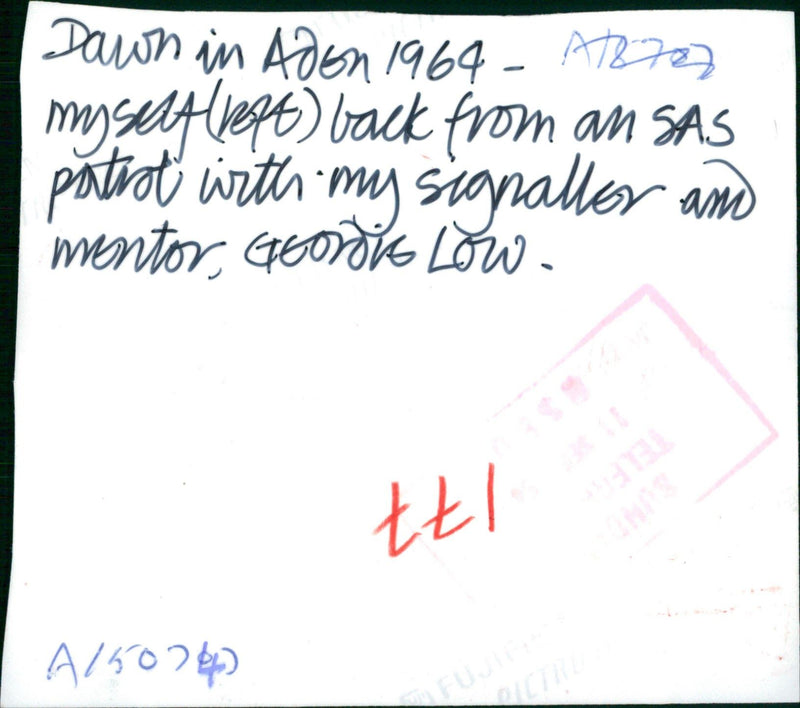 Dawn in Aden 1964 -
myself (left) back from an SAS
patrol with my signaller and
mentor, GEORDIE LOW.
TELE
FUJIFI
PICTRO